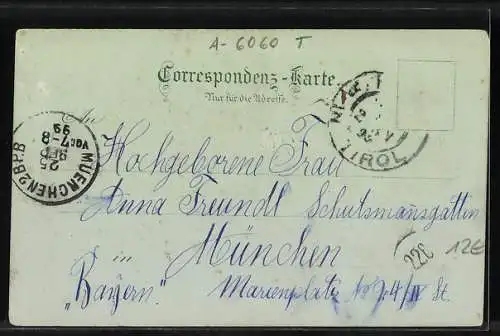 A-6060 T
Correspondenz-Karte.
Nur für die Adresse.
An
MUENCHEN 2 B.P.B
25
SEP
VOR. 7-8
99
TIROL
Hochgeborene Frau
Anna Freundl Schutzmannsgattin
in München
"Bayern" Marienplatz
220
12€